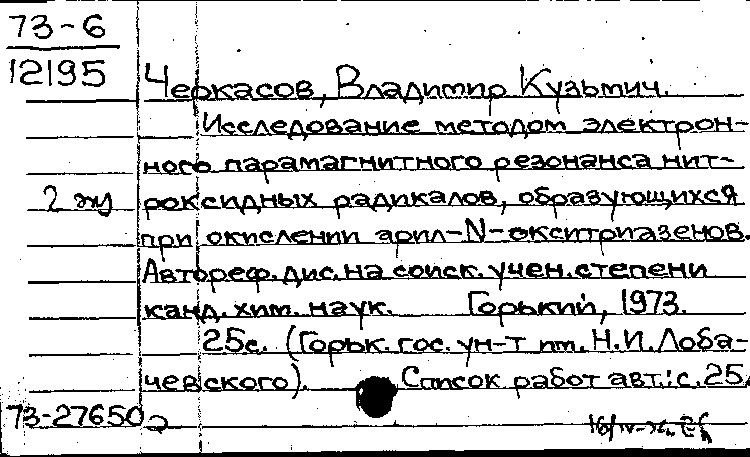 73-6
12195
Черкасов, Владимир Кузьмич.
Исследование методом электрон-
ного парамагнитного резонанса нит-
2 эк роксидных радикалов, образующихся
при окислении арил-N-окситриазенов.
Автореф. дис. на соиск. учен. степени
канд. хим. наук. Горький, 1973.
25с. (Горьк. гос. ун-т им. Н.И. Лоба-
чевского). Список работ авт.: с. 25.
73-27650